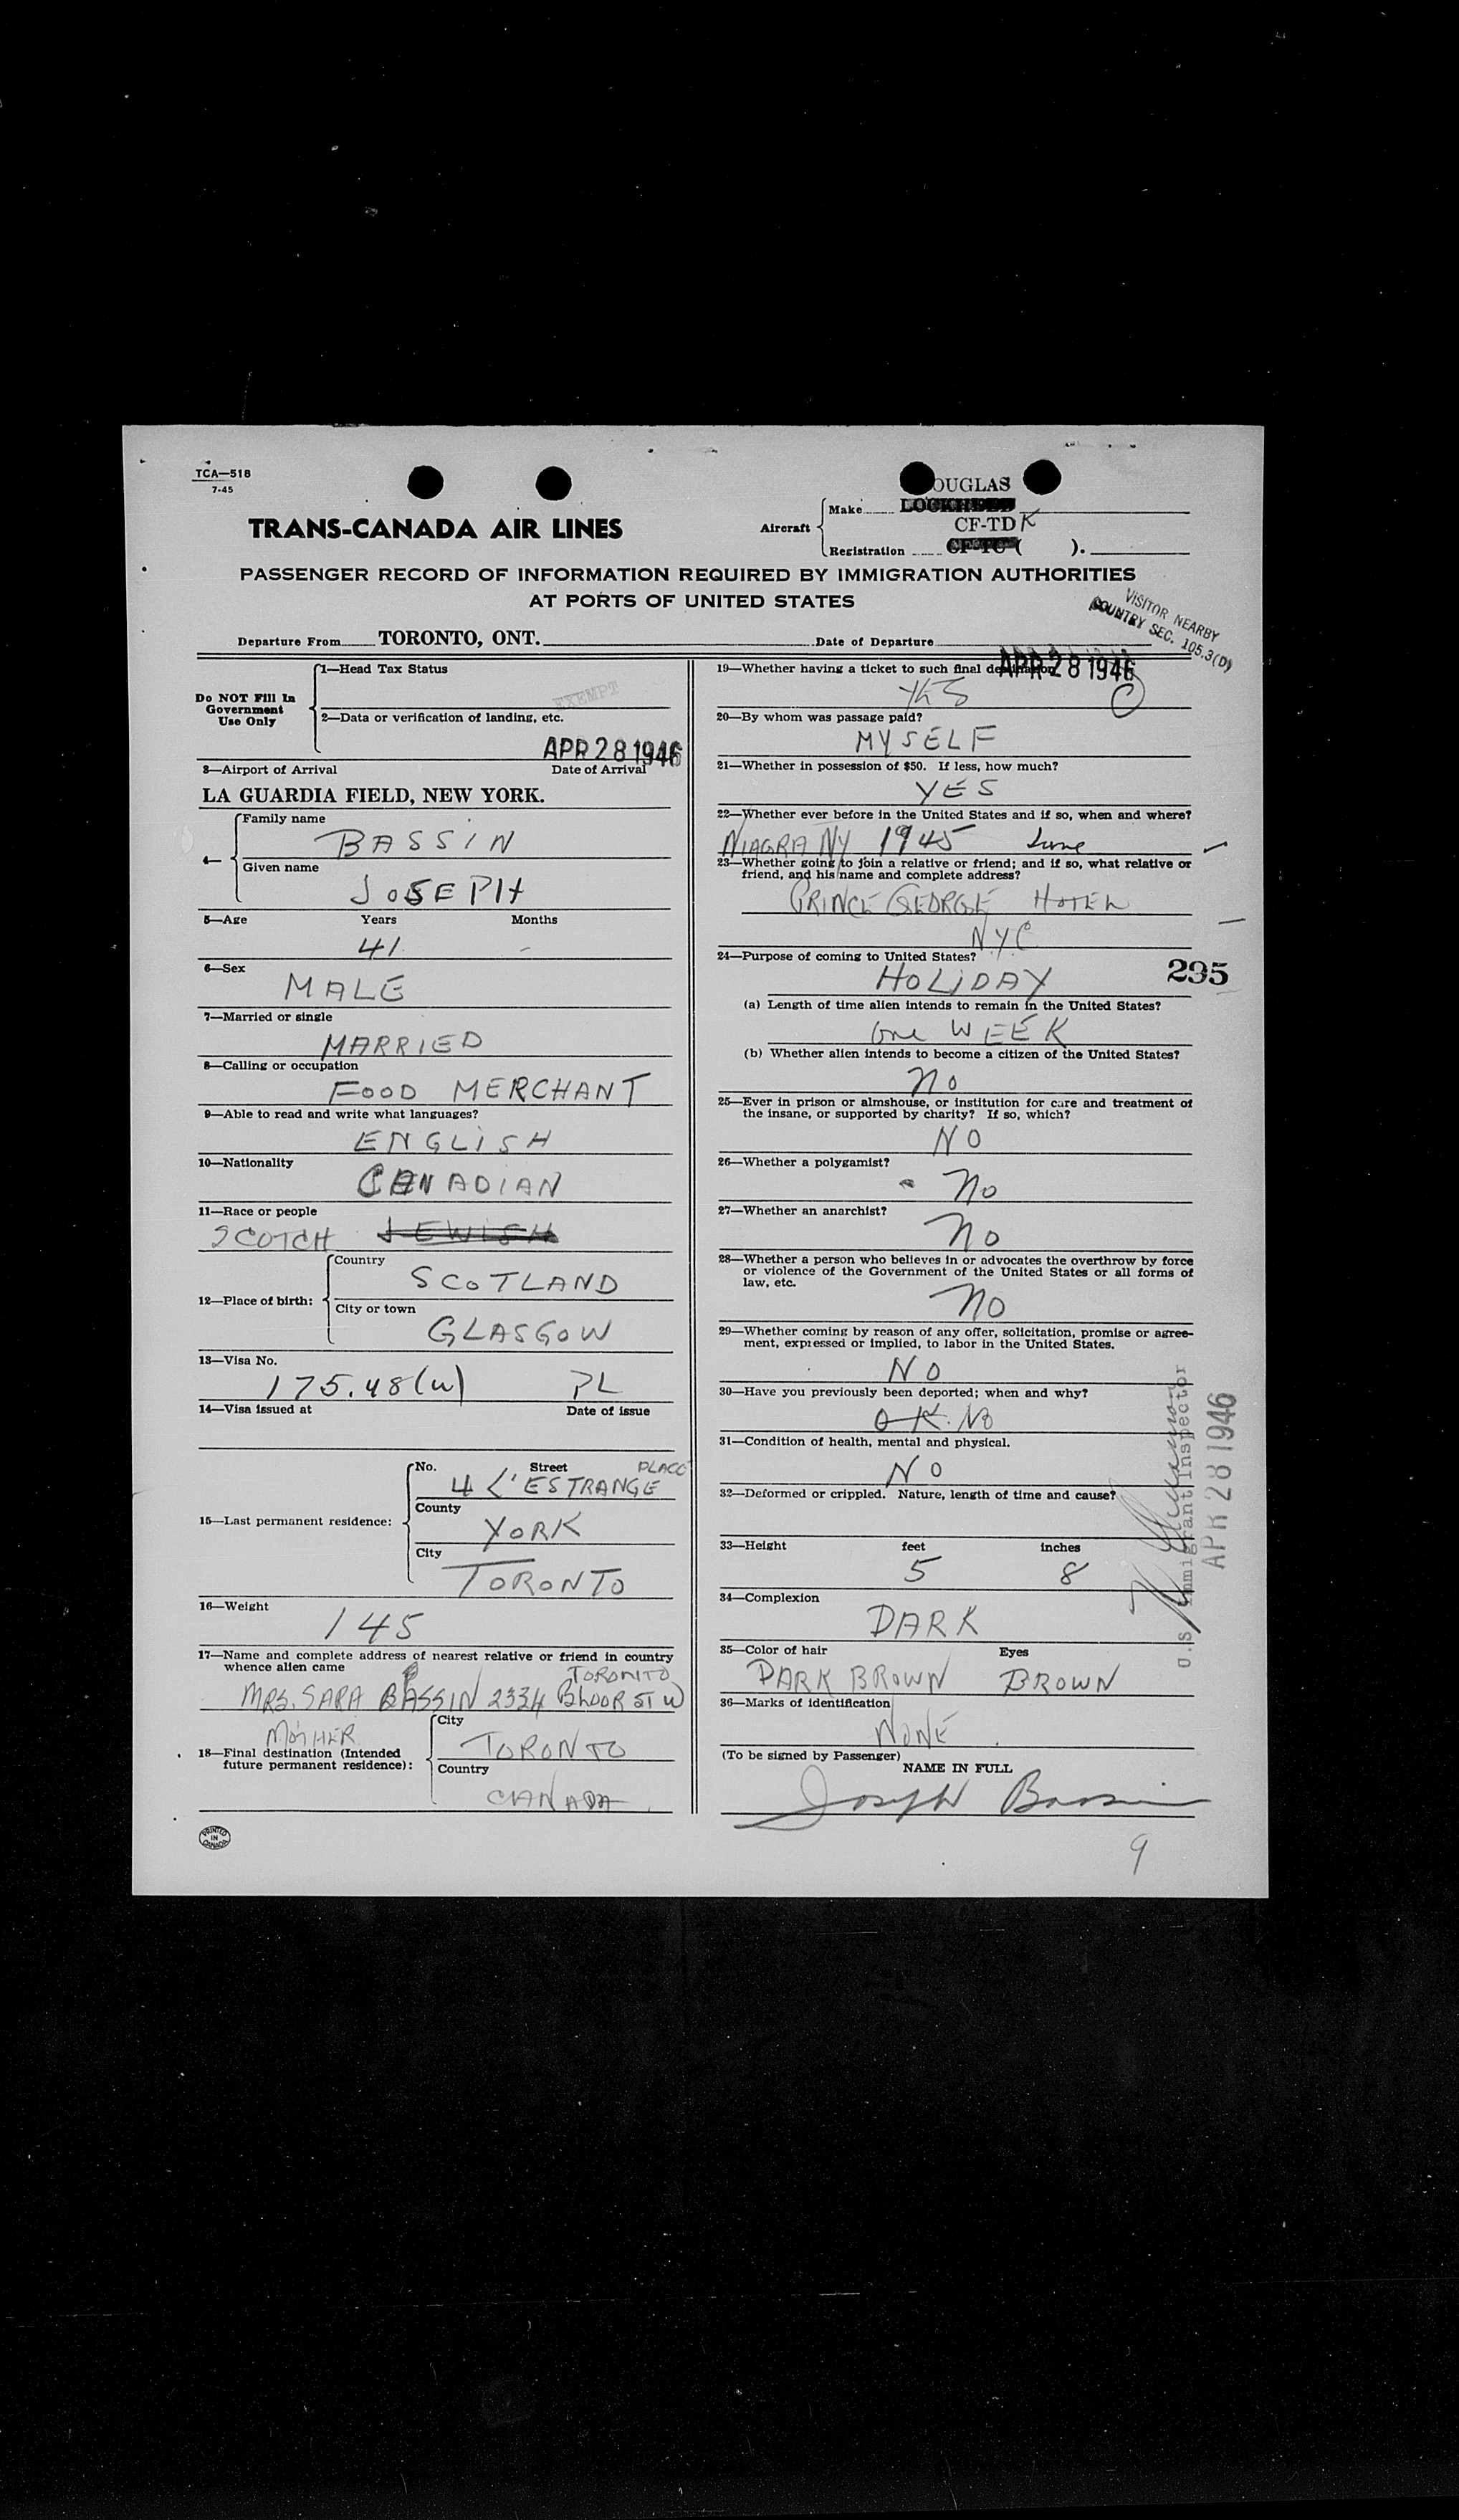 TCA—518
7-45
TRANS-CANADA AIR LINES
Aircraft
Make
OUGLAS
LOCKHEED
Registration
CF-TDK
CF-TC ( ).
PASSENGER RECORD OF INFORMATION REQUIRED BY IMMIGRATION AUTHORITIES
AT PORTS OF UNITED STATES
VISITOR NEARBY
COUNTRY SEC. 105.3(D)
Departure From TORONTO, ONT.
Date of Departure
APR 28 1946
Do NOT Fill In
Government
Use Only
1—Head Tax Status
EXEMPT
2—Data or verification of landing, etc.
APR 28 1946
3—Airport of Arrival Date of Arrival
LA GUARDIA FIELD, NEW YORK.
4—
Family name
BASSIN
Given name
JOSEPH
5—Age Years Months
41 -
6—Sex
MALE
7—Married or single
MARRIED
8—Calling or occupation
FOOD MERCHANT
9—Able to read and write what languages?
ENGLISH
10—Nationality
CANADIAN
11—Race or people
SCOTCH JEWISH
12—Place of birth:
Country
SCOTLAND
City or town
GLASGOW
13—Visa No.
175.48(w) PL
14—Visa issued at Date of issue
15—Last permanent residence:
No. Street PLACE
4 L'ESTRANGE
County
YORK
City
TORONTO
16—Weight
145
17—Name and complete address of nearest relative or friend in country
whence alien came
TORONTO
MRS. SARA BASSIN 2334 BLOOR ST W
MOTHER
18—Final destination (Intended
future permanent residence):
City
TORONTO
Country
CANADA
PRINTED
IN
CANADA
19—Whether having a ticket to such final destination
YES
20—By whom was passage paid?
MYSELF
21—Whether in possession of $50. If less, how much?
YES
22—Whether ever before in the United States and if so, when and where?
NIAGRA NY 1945 June
23—Whether going to join a relative or friend; and if so, what relative or
friend, and his name and complete address?
PRINCE GEORGE HOTEL
NYC
24—Purpose of coming to United States?
HOLIDAY
295
(a) Length of time alien intends to remain in the United States?
One WEEK
(b) Whether alien intends to become a citizen of the United States?
no
25—Ever in prison or almshouse, or institution for care and treatment of
the insane, or supported by charity? If so, which?
NO
26—Whether a polygamist?
No
27—Whether an anarchist?
No
28—Whether a person who believes in or advocates the overthrow by force
or violence of the Government of the United States or all forms of
law, etc.
No
29—Whether coming by reason of any offer, solicitation, promise or agree-
ment, expressed or implied, to labor in the United States.
NO
30—Have you previously been deported; when and why?
O.K. No
31—Condition of health, mental and physical.
NO
32—Deformed or crippled. Nature, length of time and cause?
33—Height feet inches
5 8
34—Complexion
DARK
35—Color of hair Eyes
DARK BROWN BROWN
36—Marks of identification
NONE
(To be signed by Passenger)
NAME IN FULL
Joseph Bassin
U.S. Immigrant Inspector
APR 28 1946
9